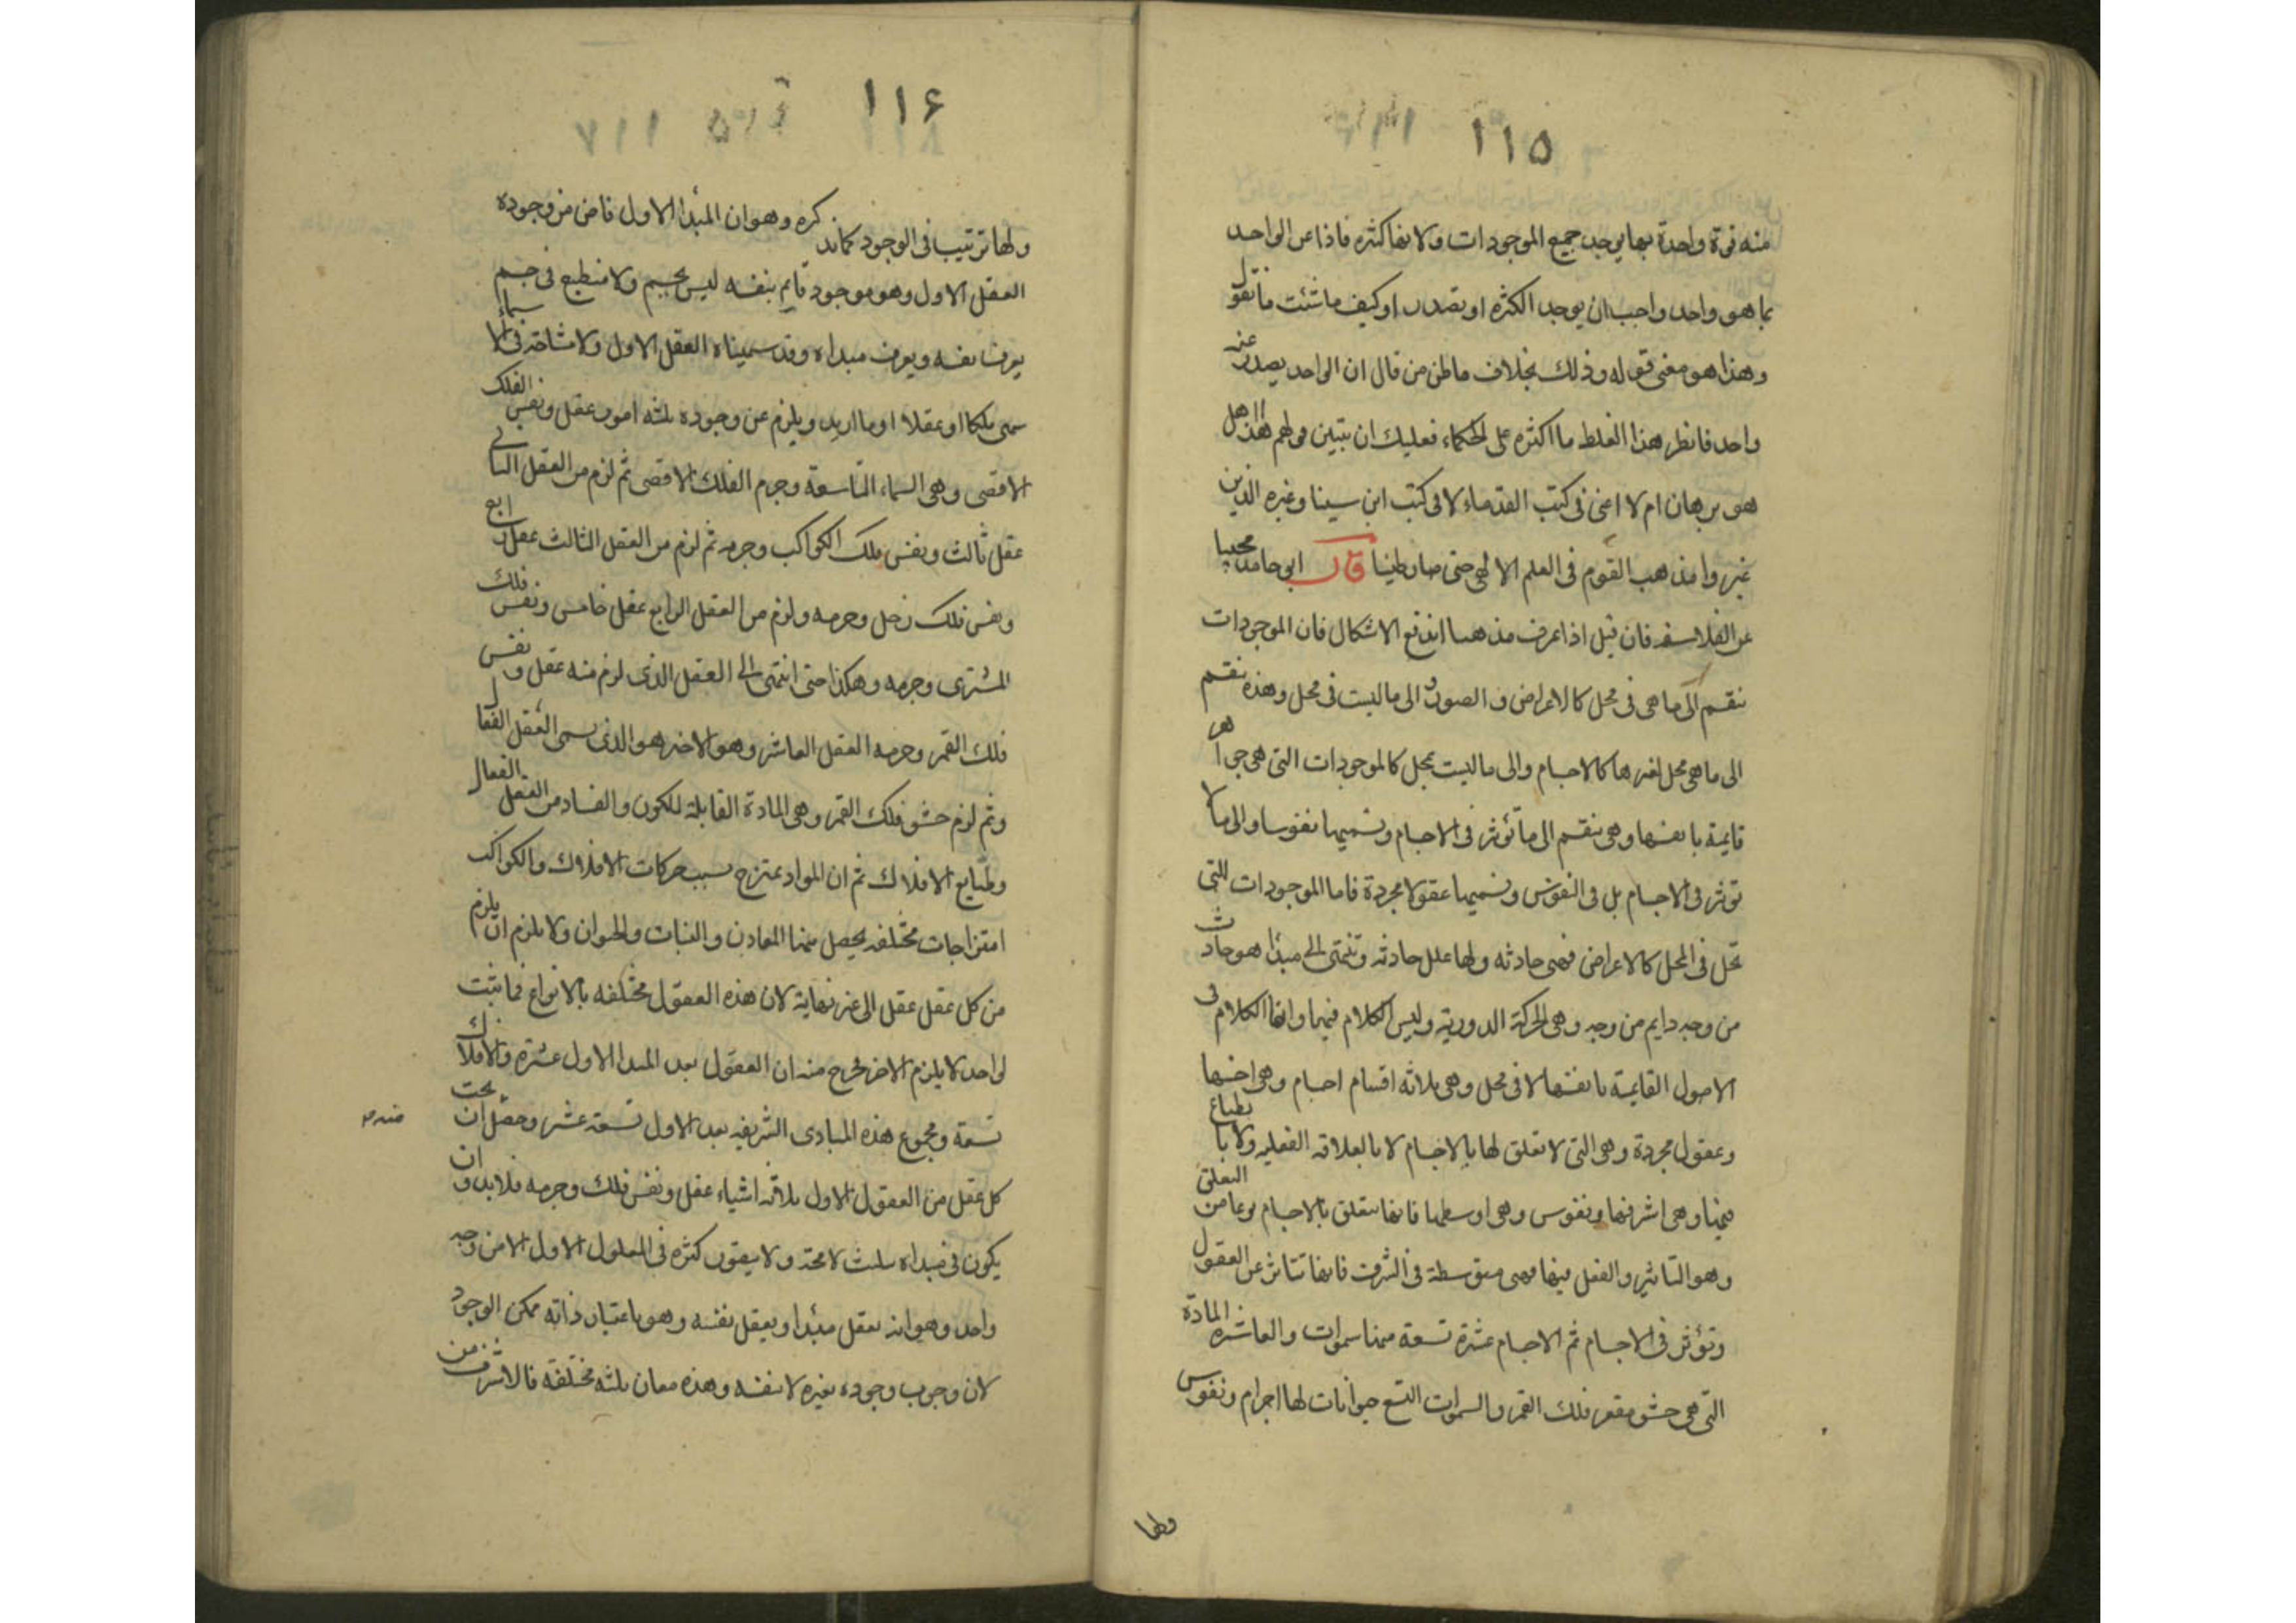 ١١٥
منه قوة واحدة بها يوجد جميع الموجودات ولانها كثره فاذا عن الواحد
بما هو واحد واجب ان يوجد الكثره او يصدر او كيف ما شئت ما تقول
وهذا هو معنى قوله وذلك بخلاف ما ظن من قال ان الواحد يصدر عنه
واحد فانظر هذا الغلط ما اكثره على الحكماء فعليك ان تتبين قولهم هذا هل
هو برهان ام لا اعنى فى كتب القدماء لا فى كتب ابن سينا وغيره الذين
غيروا مذهب القوم فى العلم الالهى حتى صار ظنيا قال ابى حامد مجيبا
عن الفلاسفه فان قيل اذا عرف مذهبنا اندفع الاشكال فان الموجودات
تنقسم الى ما هى فى محل كالاعراض والصور والى ما ليست فى محل وهذه تنقسم
الى ما هى محل لغيرها كالاجسام والى ما ليست بمحل كالموجودات التى هى جواهر
قايمة بانفسها وهى تنقسم الى ما تؤثر فى الاجسام ونسميها نفوسا والى ما لا
توثر فى الاجسام بل فى النفوس ونسميها عقولا مجردة فاما الموجودات التى
تحل فى المحل كالاعراض فهى حادثه ولها علل حادثه وتنتهى الى مبدا هو حادث
من وجه دايم من وجه وهى الحركة الدورية وليس الكلام فيها وانما الكلام فى
الاصول القايمة بانفسها لا فى محل وهى ثلاثه اقسام اجسام وهى اخسها
وعقول مجردة وهى التى لا تتعلق لها بالاجسام لا بالعلاقه الفعليه ولا بانطباع
فيها وهى اشرفها ونفوس وهى اوسطها فانها تتعلق بالاجسام نوعا من التعلق
وهو التاثير والفعل فيها فهى متوسطة فى الشرف فانها تتاثر عن العقول
وتؤثر فى الاجسام ثم الاجسام عشرة تسعة منها سموات والعاشره المادة
التى هى حشو مقعر فلك القمر والسموات التسع حيوانات لها اجرام ونفوس
ولها
١١۶
ولها ترتيب فى الوجود كما نذكره وهو ان المبدا الاول فاض من وجوده
العقل الاول وهو موجود قايم بنفسه ليس بجسم ولا منطبع فى جسم
يعرف نفسه ويعرف مبداه وقد سميناه العقل الاول ولا مشاحة فى الاسماء
سمى ملكا او عقلا او ما اريد ويلزم عن وجوده ثلثه امور عقل ونفس الفلك
الاقصى وهى السماء التاسعة وجرم الفلك الاقصى ثم لزم من العقل الثانى
عقل ثالث ونفس فلك الكواكب وجرمه ثم لزم من العقل الثالث عقل رابع
ونفس فلك زحل وجرمه ولزم من العقل الرابع عقل خامس ونفس فلك
المشترى وجرمه وهكذا حتى انتهى الى العقل الذى لزم منه عقل ونفس
فلك القمر وجرمه العقل العاشر وهو الاخر هو الذى يسمى العقل الفعال
وثم لزم حشو فلك القمر وهى المادة القابلة للكون والفساد من العقل الفعال
وطبايع الافلاك ثم ان المواد تمتزج بسبب حركات الافلاك والكواكب
امتزاجات مختلفه يحصل منها المعادن والنبات والحيوان ولا يلزم ان يلزم
من كل عقل عقل الى غير نهاية لان هذه العقول مختلفه بالانواع فما ثبت
لواحد لا يلزم الاخر فخرج منه ان العقول بعد المبدا الاول عشرة والافلاك
تسعة ومجموع هذه المبادى الشريفه بعد الاول تسعة عشر وحصل ان تحت
كل عقل من العقول الاول ثلاثه اشياء عقل ونفس فلك وجرمه فلا بد وان
يكون فى مبداه تثليث لا محة ولا يتصور كثره فى المعلول الاول الا من وجه
واحد وهو انه يعقل مبدا ويعقل نفسه وهو باعتبار ذاته ممكن الوجود
لان وجوب وجوده بغيره لا بنفسه وهذه معان ثلثه مختلفه فالاشرف من